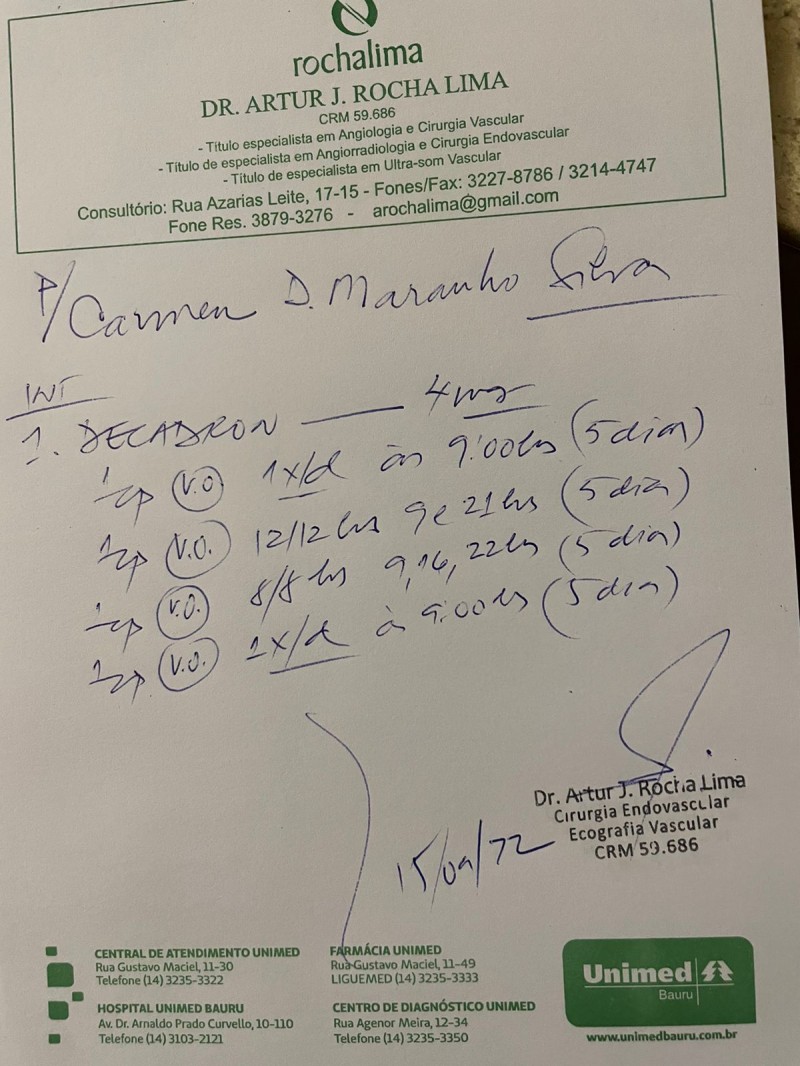 rochalima
DR. ARTUR J. ROCHA LIMA
CRM 59.686
- Título especialista em Angiologia e Cirurgia Vascular
- Título de especialista em Angiorradiologia e Cirurgia Endovascular
- Título de especialista em Ultra-som Vascular
Consultório: Rua Azarias Leite, 17-15 - Fones/Fax: 3227-8786 / 3214-4747
Fone Res. 3879-3276 - arochalima@gmail.com
P/ Carmen D. Maranho Silva
INT
1. DECADRON 4mg
1cp V.O 1x/d às 9:00hs (5 dias)
1cp V.O. 12/12 hs 9 e 21hs (5 dias)
1cp V.O. 8/8 hs 9, 22hs (5 dias)
1cp V.O. 1x/d às 9:00hs (5 dias)
Dr. Artur J. Rocha Lima
Cirurgia Endovascular
Ecografia Vascular
CRM 59.686
15/
CENTRAL DE ATENDIMENTO UNIMED
Rua Gustavo Maciel, 11-30
Telefone (14) 3235-3322
FARMÁCIA UNIMED
Rua Gustavo Maciel, 11-49
LIGUEMED (14) 3235-3333
HOSPITAL UNIMED BAURU
Av. Dr. Arnaldo Prado Curvello, 10-110
Telefone (14) 3103-2121
CENTRO DE DIAGNÓSTICO UNIMED
Rua Agenor Meira, 12-34
Telefone (14) 3235-3350
Unimed
Bauru
www.unimedbauru.com.br